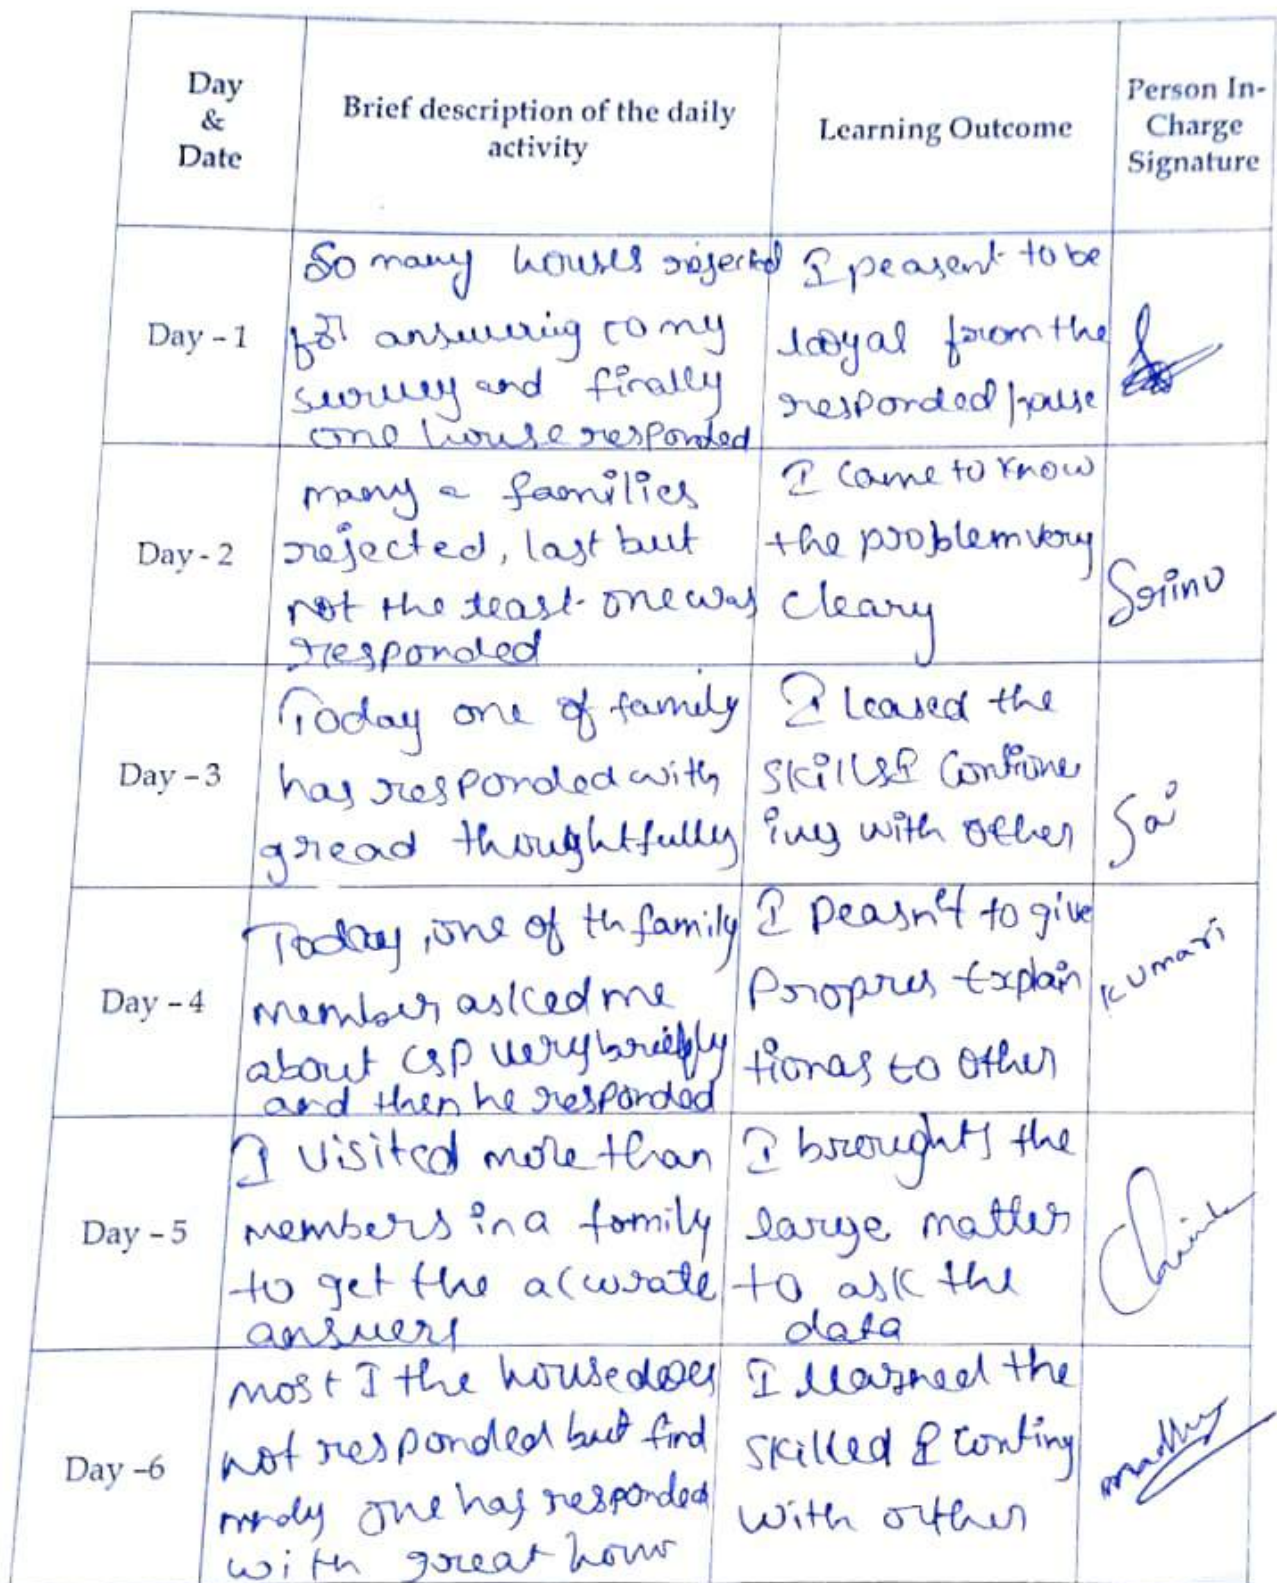 Day
&
Date
Brief description of the daily
activity
Learning Outcome
Person In-
Charge
Signature
Day - 1
So many houses rejected
for answering to my
survey and finally
one house responded
I peasent to be
loyal from the
responded house
Day - 2
many a families
rejected, last but
not the least one was
responded
I came to know
the problem very
cleary
Srinu
Day - 3
Today one of family
has responded with
gread thoughtfully
I leased the
skills &
with other
Sai
Day - 4
Today, one of th family
member asked me
about CSP very briefly
and then he responded
I peasnt to give
Propres explain
tionas to other
Kumari
Day - 5
I visited more than
members in a family
to get the accurate
answers
I broughts the
large matter
to ask the
data
Day -6
most I the house does
not responded but find
one has responded
with great
I learned the
skilled & conting
with outher
madhu